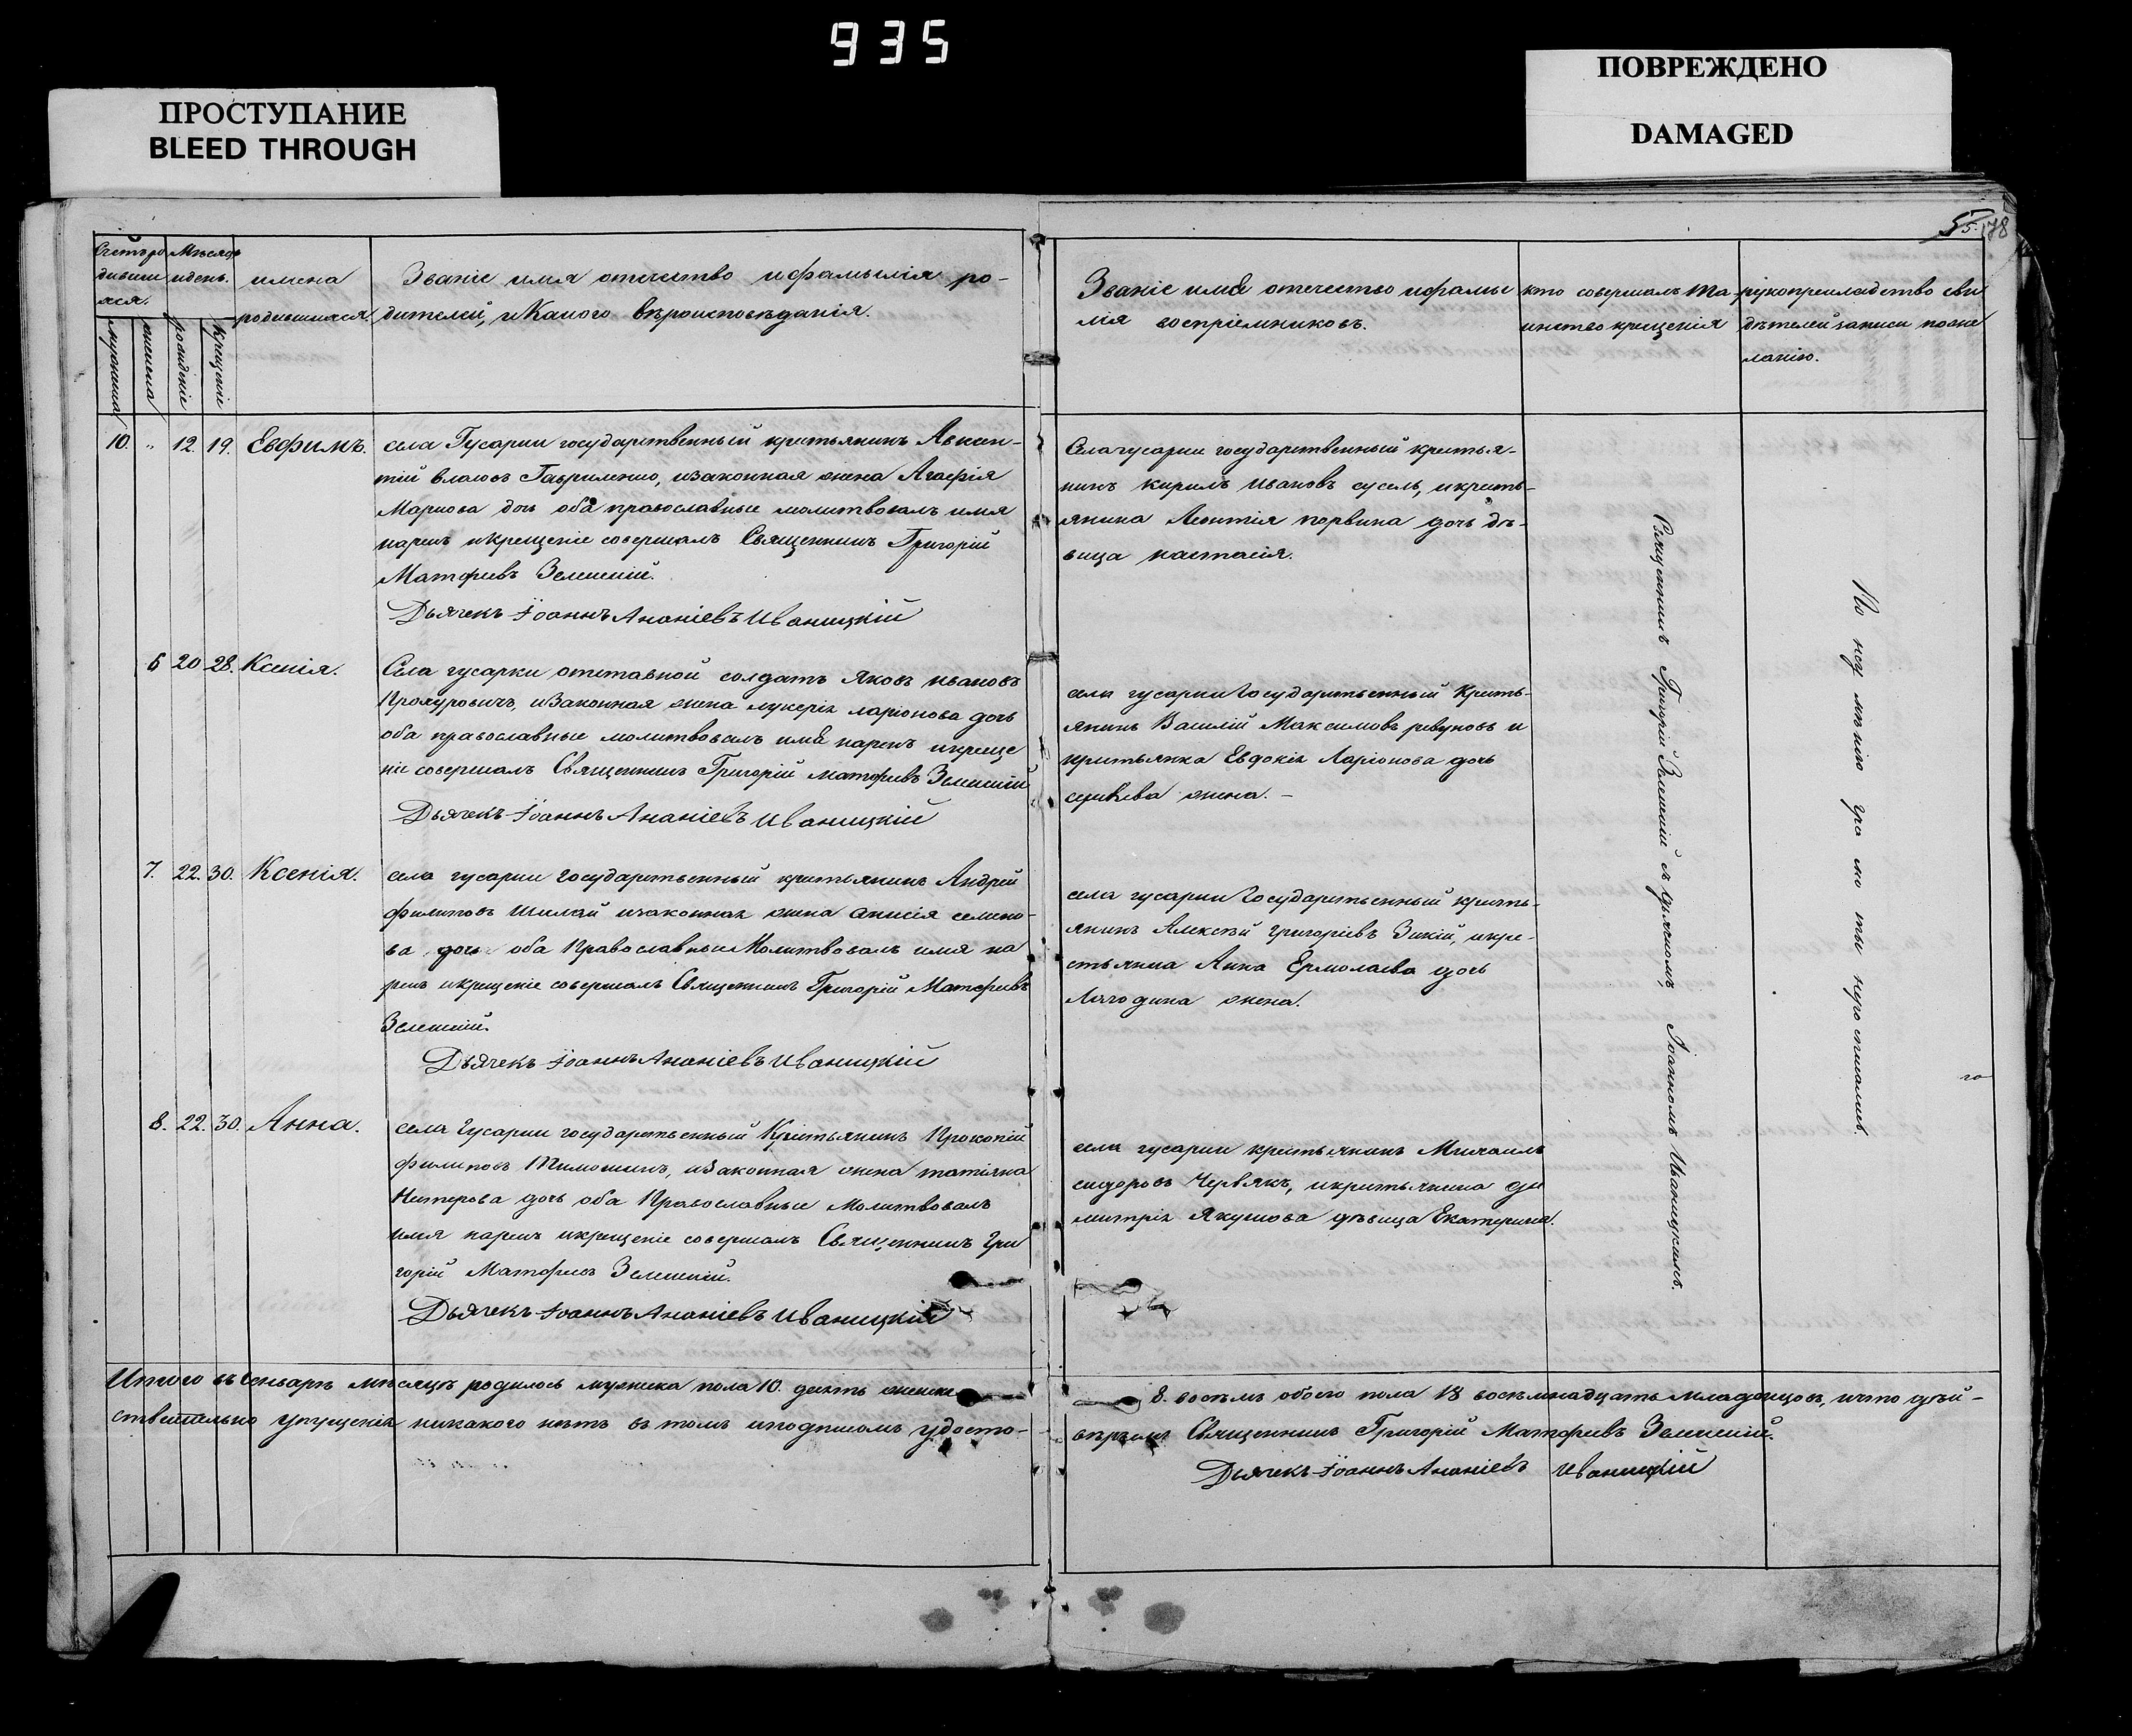 935
ПРОСТУПАНИЕ
BLEED THROUGH
ПОВРЕЖДЕНО
DAMAGED
178
Счетъ ро
дивши
хся.
мужеска
женска
Мѣсяцъ
и день.
рождение
Крещение
имена
родившихся.
Званіе имя отечество и фамилія ро-
дителей, и Какого вѣроисповѣданія.
Званіе имя отечество и фами
лія воспріемниковъ.
кто совершалъ та
инство крещенія
рукоприкладство сви
дѣтелей записи по же
ланію.
10. " 12. 19. Евфимъ.
села Гусарки государственный крестьянинъ Авксен-
тій Власовъ Гавриленко, и законная жена Агафія
Маркова дочь оба православные молитвовалъ имя
нарекъ и крещеніе совершалъ Священникъ Григорій
Матфеевъ Зеленскій.
Дьячекъ Іоаннъ Ананіевъ Иваницкій
Села гусарки государственный крестья-
нинъ Кирилъ Ивановъ сусель, и кресть-
янина Леонтія дочь дѣ-
вица настасія.
6 20 28. Ксенія.
Села гусарки отставной солдатъ Яковъ Ивановъ
и Законная жена лукерія ларіонова дочь
оба православные молитвовалъ имя нарекъ и креще
ніе совершалъ Священникъ Григорій матфеевъ Зеленскій
Дьячекъ Іоаннъ Ананіевъ Иваницкій
села гусарки Государственный Кресть-
янинъ Василій Максимовъ ревуновъ и
крестьянка Евдокія Ларіонова дочь
жена. -
7. 22. 30. Ксенія.
села гусарки Государственный крестьянинъ Андрей
филиповъ Шилай и законная жена анисія семено-
ва дочь оба Православные Молитвовалъ имя на
рекъ и крещеніе совершалъ Священникъ Григорій Матфеевъ
Зеленскій.
Дьячекъ Іоаннъ Ананіевъ Иваницкій
села гусарки Государственный кресть-
янинъ Алексѣй Григоріевъ Зикій, и кре-
стьянка Анна Ермолаева дочь
жена.
8. 22. 30. Анна.
села Гусарки государственный Крестьянинъ Прокопій
филиповъ Тимошинъ, и Законная жена татіяна
Нестерова дочь оба Православные Молитвовалъ
имя нарекъ и крещеніе совершалъ Священникъ Гри
горій Матфеевъ Зеленскій.
Дьячекъ Іоаннъ Ананіевъ Иваницкій
села гусарки крестьянинъ Михаилъ
сидоровъ Червякъ, и крестьянина ди
митрія Якушова дѣвица Екатерина.
Священникъ Григорій Зеленскій съ дьячкомъ Іоанномъ Иваницкимъ.
По не у мѣнію гра мо ты не росписались.
Итого въ Генварѣ мѣсяцѣ родилось мужеска пола 10. десять женска 8. восѣмъ обоего пола 18 восѣмнадцать младенцовъ, и что дѣй-
ствительно упущенія никакого нѣтъ въ томъ и подписомъ удосто-
вѣряемъ Священникъ Григорій Матфеевъ Зеленскій.
Дьячекъ Іоаннъ Ананіевъ Иваницкій